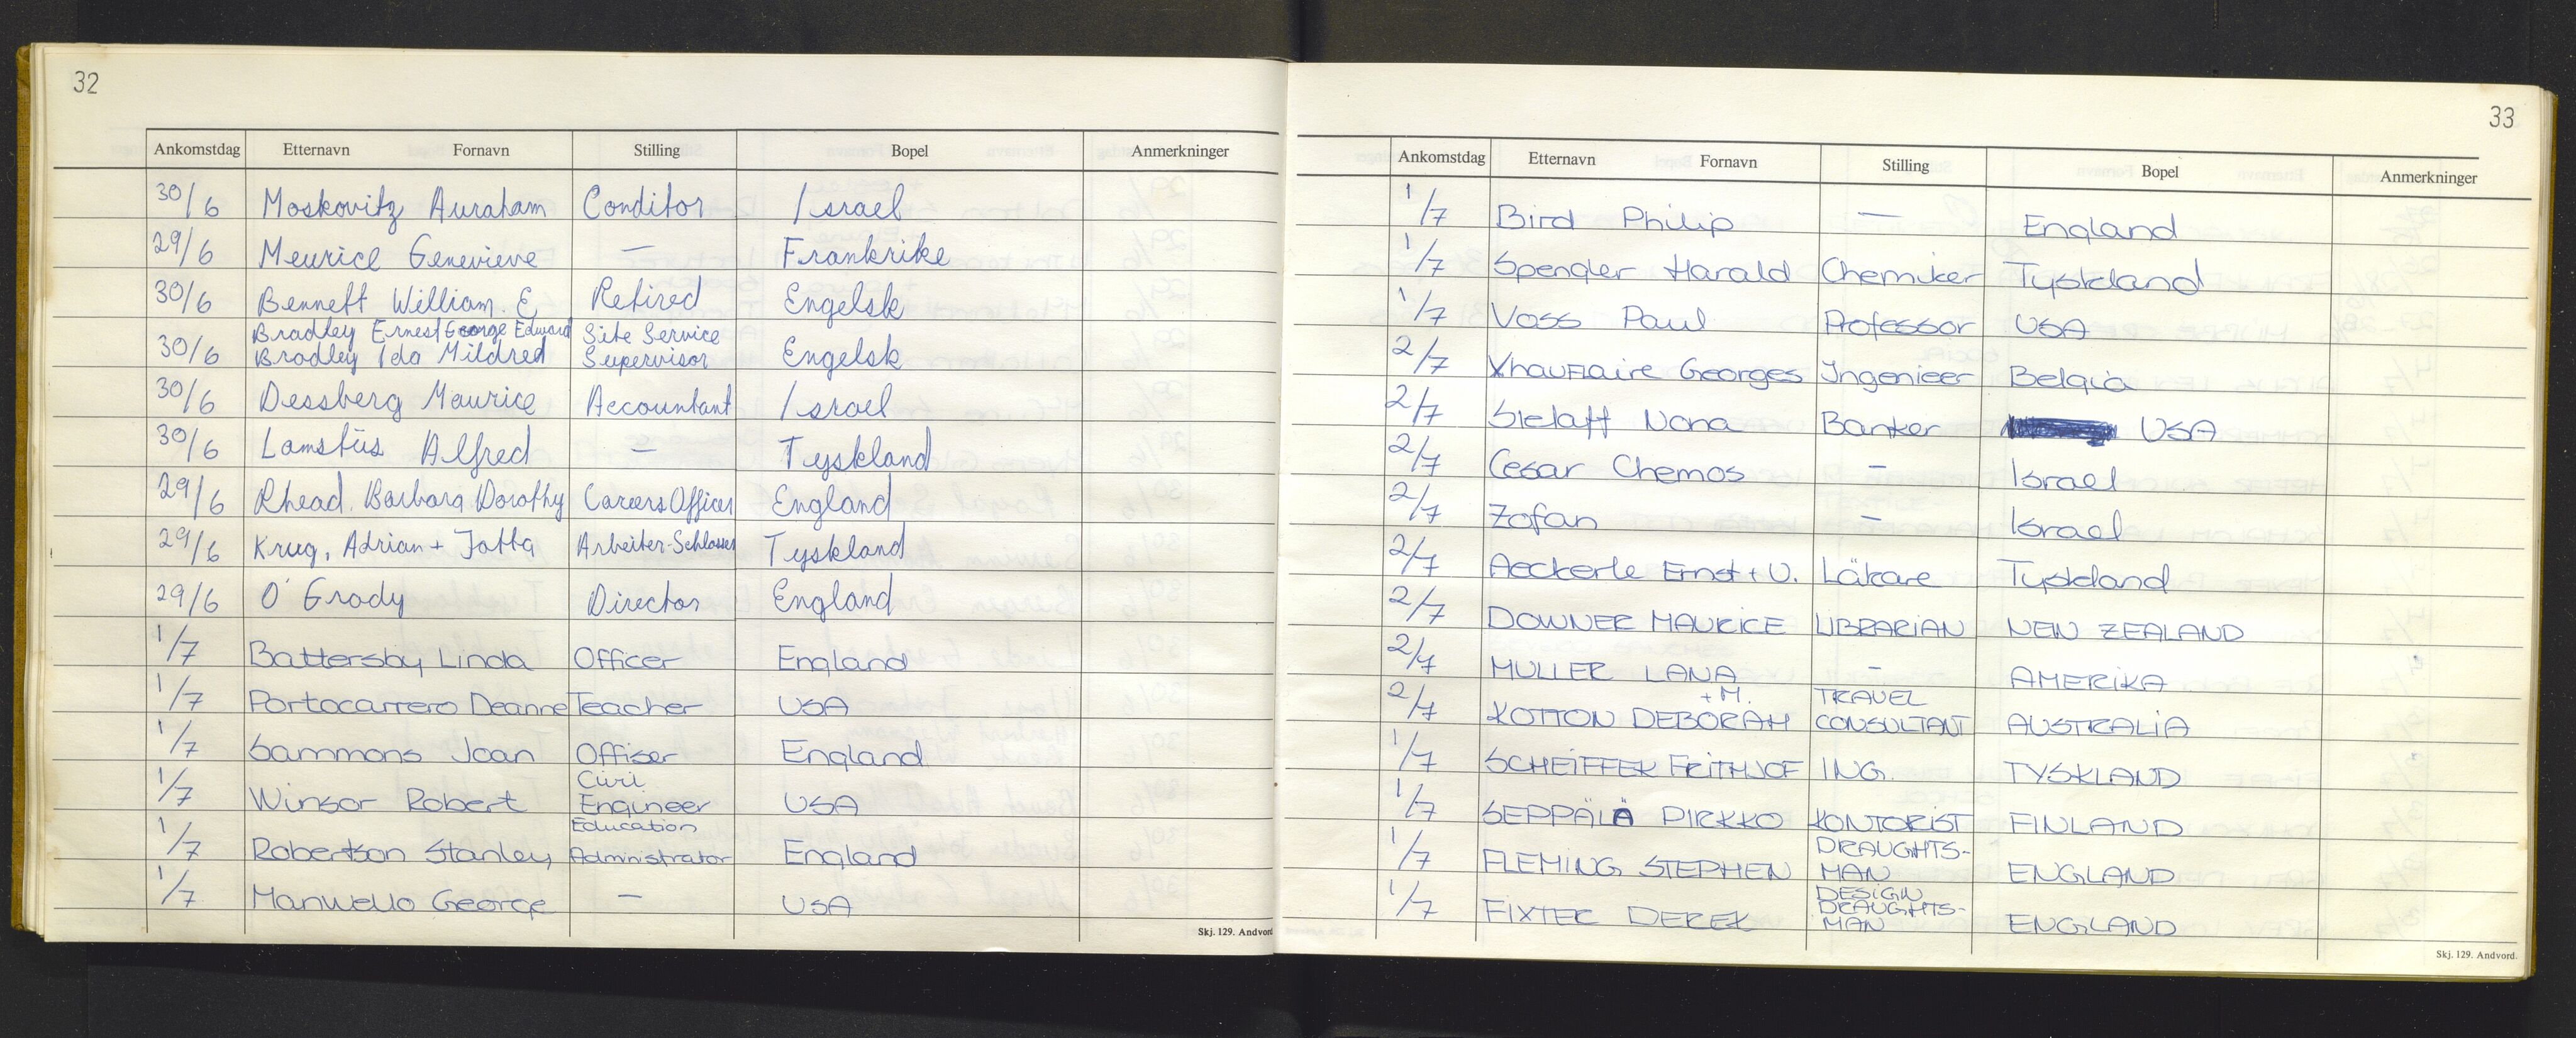 32
Ankomstdag Etternavn Fornavn Stilling Bopel Anmerkninger
30/6 Moskovitz Avraham Conditor Israel
29/6 Meurice Genevieve — Frankrike
30/6 Bennett William. E. Retired Engelsk
Bradley Ernest George Edward Site Service
30/6 Bradley Ida Mildred Supervisor Engelsk
30/6 Dessberg Maurice Accountant Israel
30/6 Lamstüs Alfred — Tyskland
29/6 Rhead. Barbara Dorothy Careers Officer England
29/6 Krug, Adrian + Jotta Arbeiter-Schlosser Tyskland
29/6 O'Grady Director England
1/7 Battersby Linda Officer England
1/7 Portocarrero Deanne Teacher USA
1/7 Sammons Joan Offiser England
Civil
1/7 Winsor Robert Engineer USA
Education
1/7 Robertson Stanley Administrator England
1/7 Manwello George — USA
Skj. 129. Andvord
33
Ankomstdag Etternavn Fornavn Stilling Bopel Anmerkninger
1/7 Bird Philip — England
1/7 Spengler Harald Chemiker Tyskland
1/7 Voss Paul Professor USA
2/7 Xhauflaire Georges Ingenieer Belgia
2/7 Sielaff Nona Banker USA
2/7 Cesar Chemos — Israel
2/7 Zofan — Israel
2/7 Aeckerle Ernst + U. Läkare Tyskland
2/7 DOWNER MAURICE LIBRARIAN NEW ZEALAND
2/7 MULLER LANA — AMERIKA
+ M. TRAVEL
2/7 KOTTON DEBORAH CONSULTANT AUSTRALIA
1/7 SCHEIFFEK FRITHJOF ING. TYSKLAND
1/7 SEPPÄLÄ PIRKKO KONTORIST FINLAND
DRAUGHTS-
1/7 FLEMING STEPHEN MAN ENGLAND
DESIGN
DRAUGHTS-
1/7 FIXTER DEREK MAN ENGLAND
Skj. 129. Andvord.